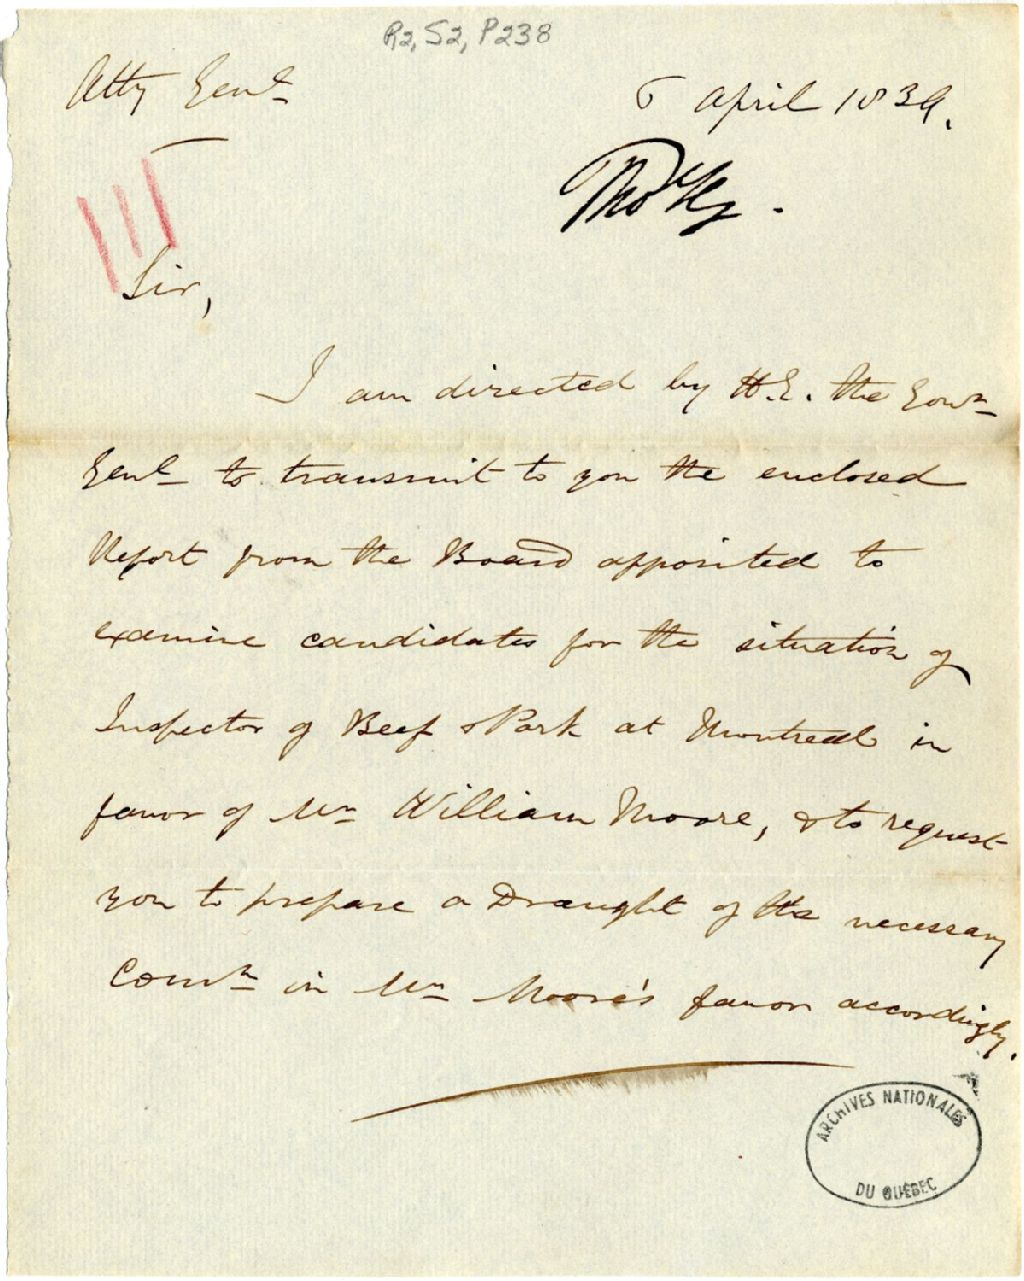 R2, S2, P238
Atty Genl
6 April 1839.
Sir,
I am directed by H.E. the Govr
Genl to transmit to you the enclosed
Report from the Board appointed to
examine candidates for the situation of
Inspector of Beef & Pork at Montreal in
favor of Mr William Moore, & to request
you to prepare a Draught of the necessary
Comn in Mr Moore's favor accordingly.
ARCHIVES NATIONALES
DU QUÉBEC